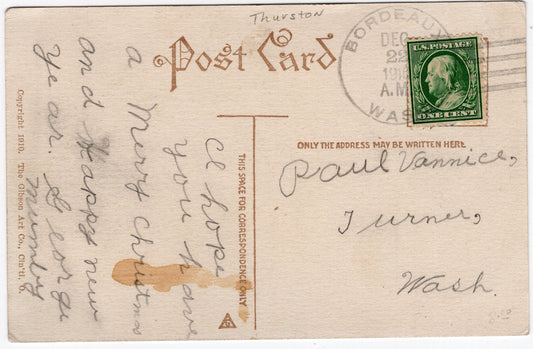 Thurston
Post Card
BORDEAUX
DEC
22
A.M
WAS
U.S. POSTAGE
ONE CENT
ONLY THE ADDRESS MAY BE WRITTEN HERE
Paul Vannice,
Turner,
Wash.
THIS SPACE FOR CORRESPONDENCE ONLY
I hope
you have
a Merry Christmas
and Happy new
year. George
Mumby
Copyright 1910. The Gibson Art Co., Cin'ti, O.